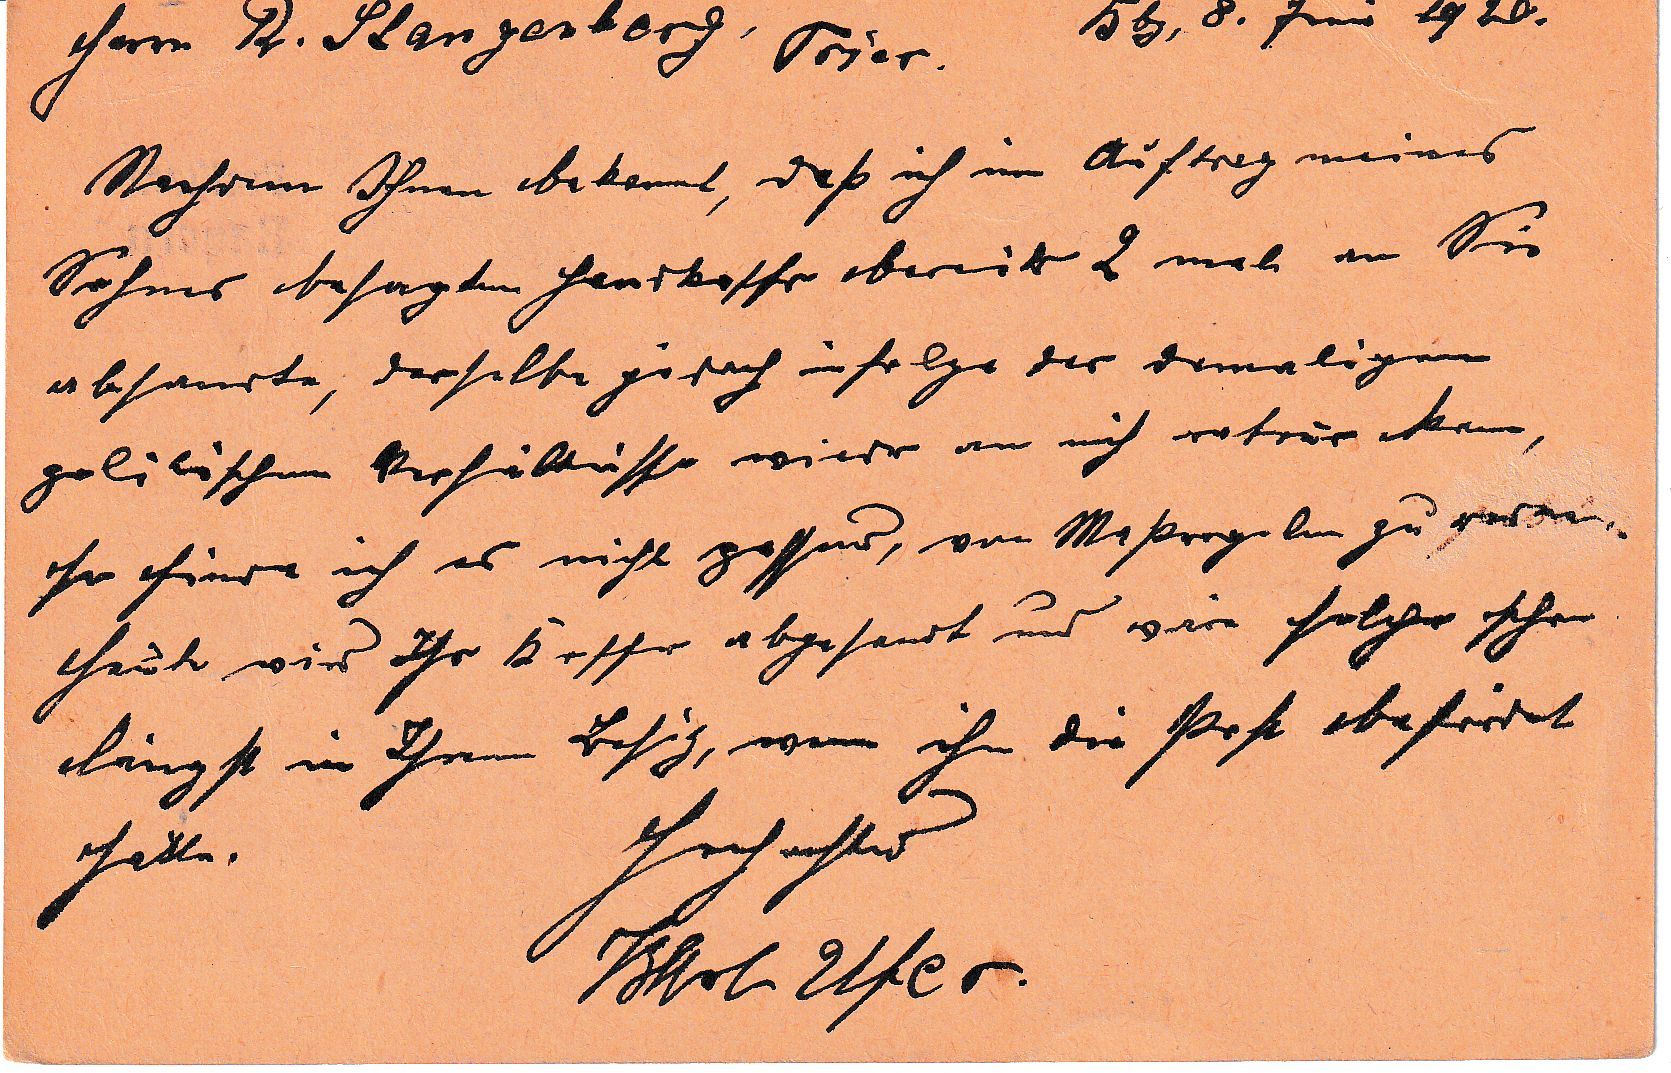 Herrn R. Stangenberg, Trier. Hbg, 8. Juni 1920.
Nachdem Ihnen bekannt, daß ich im Auftrag meines
Sohnes besagten Handkoffer bereits 2 mal an Sie
absandte, derselbe jedoch infolge der damaligen
politischen Verhältnisse wieder an mich retour kam,
so finde ich es nicht passend, von Maßregeln zu reden.
Heute wird Ihr Koffer abgesandt und wäre solcher schon
längst in Ihrem Besitz, wenn ihn die Post befördert
hätte.
Hochachtend
Ufer.